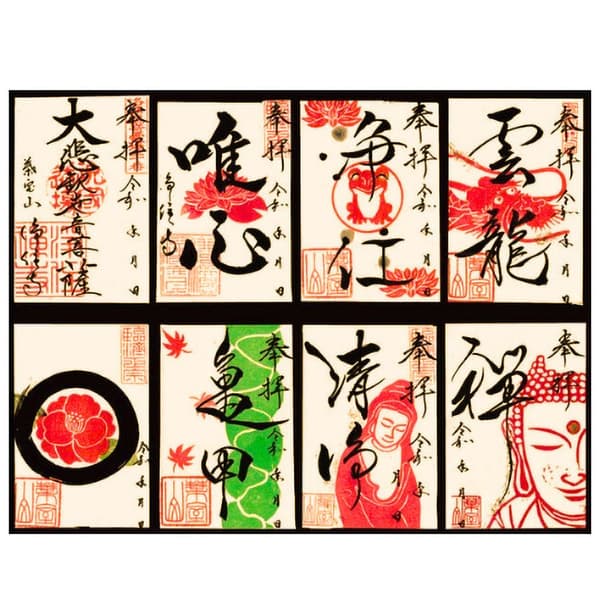 奉拝
令和 年 月 日
大悲観世音菩薩
葉室山
浄住寺
奉拝
令和 年 月 日
唯心
浄住寺
奉拝
令和 年 月 日
浄住
奉拝
令和 年 月 日
雲龍
令和 年 月 日
奉拝
令和 年 月 日
亀甲
奉拝
令和 年 月 日
清浄
奉拝
令和 年 月 日
禅